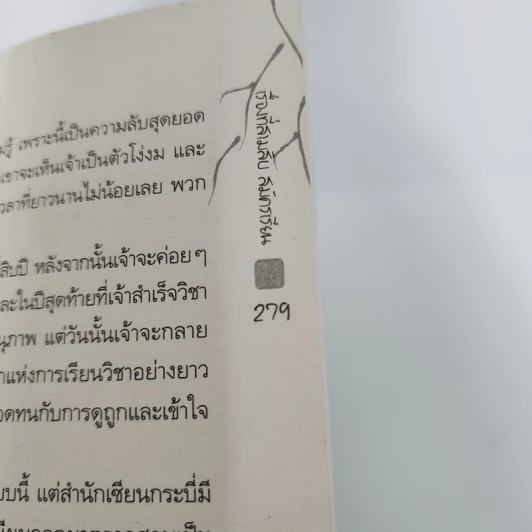 รู้ เพราะนี้เป็นความลับสุดยอด
เขาจะเห็นเจ้าเป็นตัวโง่งม และ
เวลาที่ยาวนานไม่น้อยเลย พวก
สิบปี หลังจากนั้นเจ้าจะค่อยๆ
และในปีสุดท้ายที่เจ้าสำเร็จวิชา
นุภาพ แต่วันนั้นเจ้าจะกลาย
แห่งการเรียนวิชาอย่างยาว
ดทนกับการดูถูกและเข้าใจ
บบนี้ แต่สำนักเซียนกระบี่มี
เรื่องที่สามสิบ สมัครเรียน
279